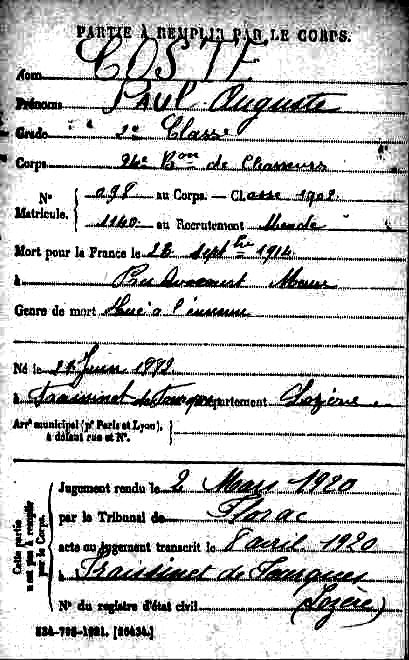 PARTIE À REMPLIR PAR LE CORPS.
COSTE
Nom
Prénoms PAUL Auguste
Grade 2e Classe
Corps 24e Bon de Chasseurs
No Matricule. 098 au Corps. — Classe 1902
1140 au Recrutement Mende
Mort pour la France le 23 septbre 1914
à Meuse
Genre de mort Tué à l'ennemi
Né le Juin
à Fraissinet de Fourques Département Lozère
Arrt municipal (pr Paris et Lyon), à défaut rue et No.
Cette partie n'est pas à remplir par le Corps.
Jugement rendu le 2 Mars 1920
par le Tribunal de Florac
acte ou jugement transcrit le 8 avril 1920
à Fraissinet de Fourques
(Lozère)
No du registre d'état civil
534-708-1921. [26434.]